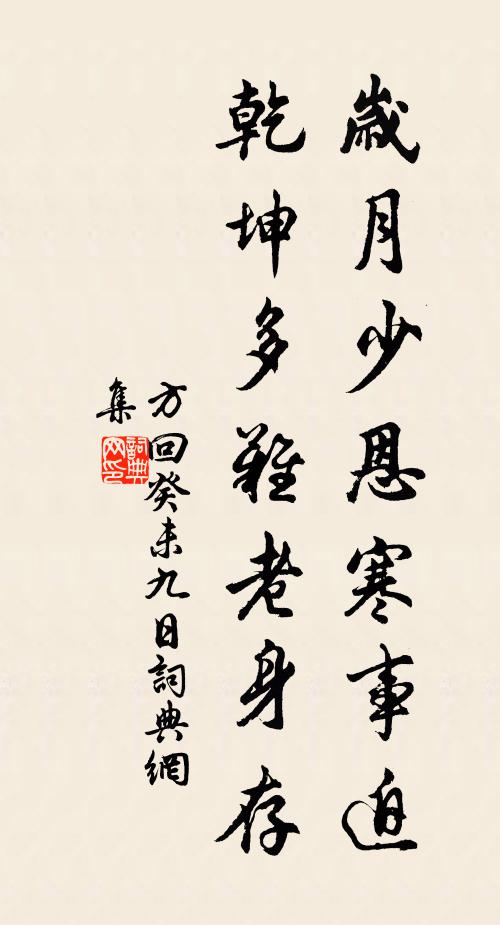 歲月少恩寒事迫
乾坤多難老身存
方回癸未九日詞典網
集
詞典
网印